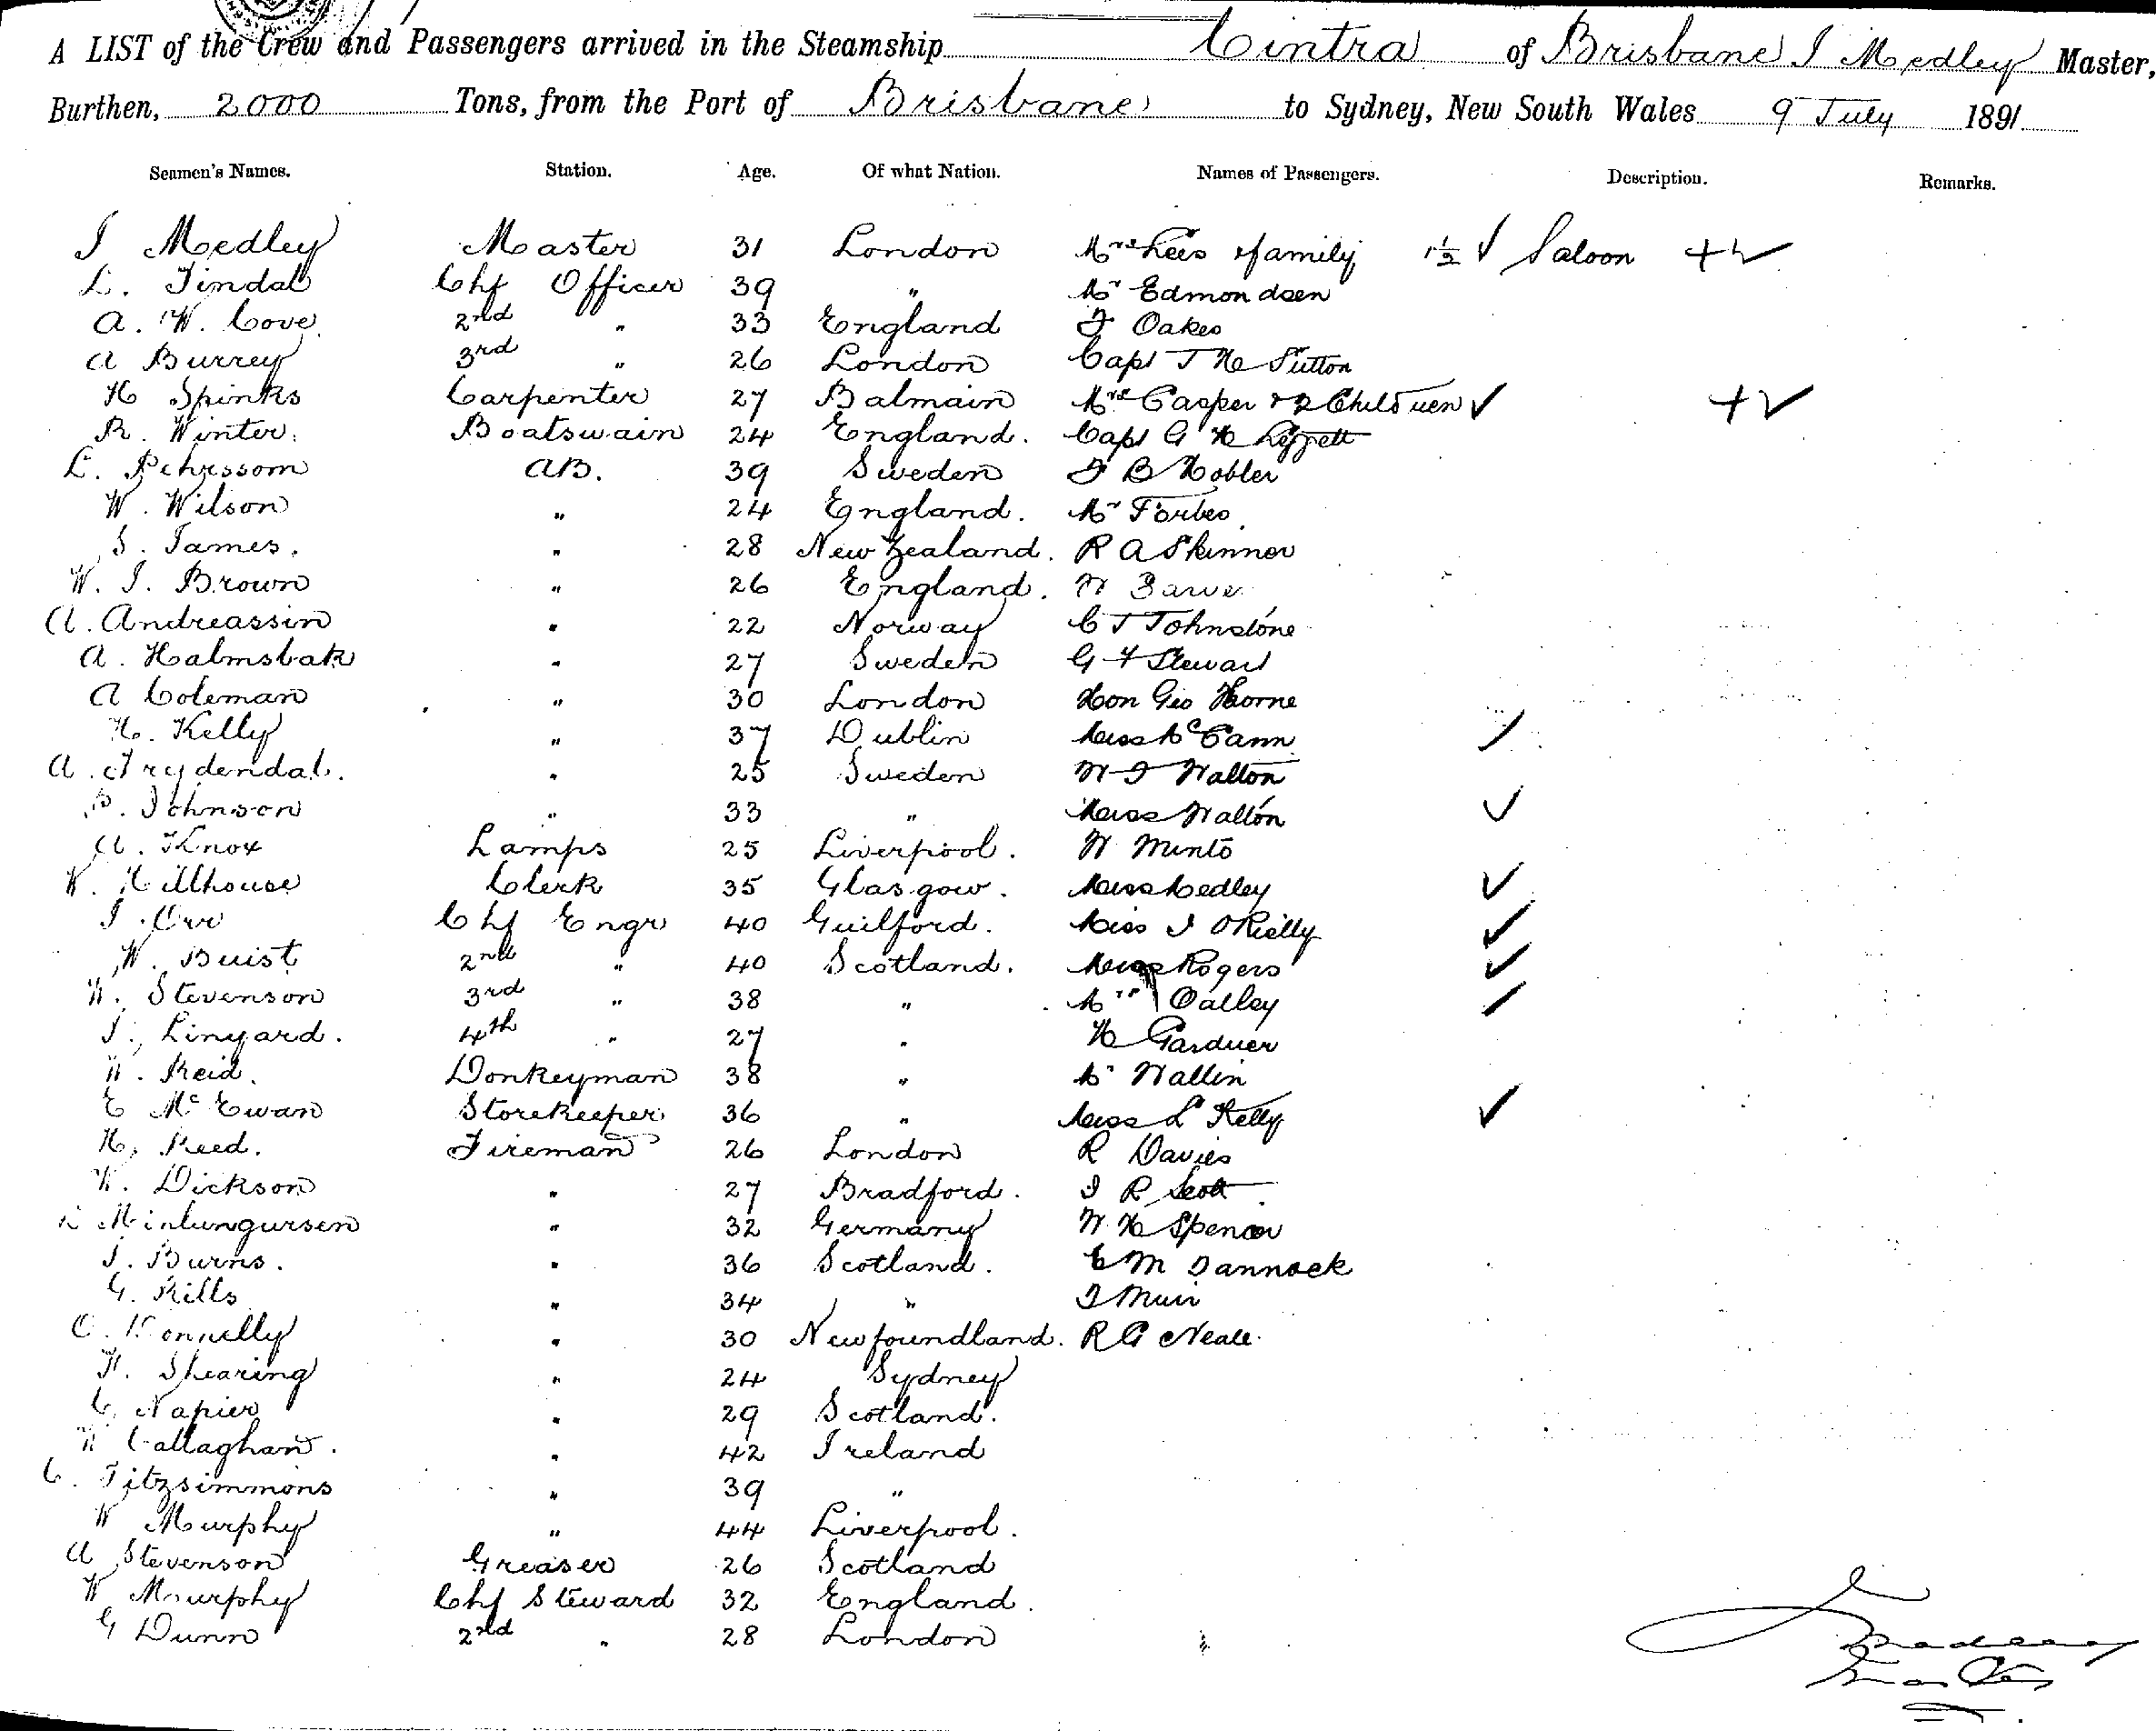 A LIST of the Crew and Passengers arrived in the Steamship Cintra of Brisbane J Medley Master,
Burthen, 2000 Tons, from the Port of Brisbane to Sydney, New South Wales 9 July 1891
Seamen's Names. Station. Age. Of what Nation. Names of Passengers. Description. Remarks.
J Medley Master 31 London Mrs Lees & family 1½ ✓ Saloon + ✓
L. Tindal Chf Officer 39 " Mr Edmondsen
A. W. Cove 2nd " 33 England F Oakes
A Burrey 3rd " 26 London Capt T H Sutton
H Spinks Carpenter 27 Balmain Mrs Casper & 2 Children ✓ + ✓
R. Winter. Boatswain 24 England. Capt G H Liggett
L. Pehrssom AB. 39 Sweden F B Hobler
W. Wilson " 24 England. Mr Forbes
S. James. " 28 New Zealand. R A Skinner
W. J. Brown " 26 England. W
A. Andreassin " 22 Norway C J Johnstone
A. Halmsbak " 27 Sweden G F Stewart
A Coleman " 30 London Hon Geo Thorne
H. Kelly " 37 Dublin Miss McCann ✓
A. Frydendal. " 25 Sweden W J Walton
P. Johnson " 33 " Miss Walton ✓
A. Knox Lamps 25 Liverpool. W Minto
W. Hillhouse Clerk 35 Glasgow. Miss Medley ✓
J. Orr Chf Engr 40 Guilford. Miss J O'Rielly ✓
W. Buist 2nd " 40 Scotland. Miss Rogers ✓
W. Stevenson 3rd " 38 " Mrs Oatley ✓
J. Linyard. 4th " 27 " H Gardner
W. Reid. Donkeyman 38 " Mr Wallin
E McEwan Storekeeper 36 " Miss L Kelly ✓
H. Reed. Fireman 26 London R Davies
W. Dickson " 27 Bradford. J R Scott
" 32 Germany W H Spencer
J. Burns. " 36 Scotland. C M Dannock
G. Kills " 34 " J Muir
O. Connelly " 30 Newfoundland. R G Neale
H. Shearing " 24 Sydney
C. Napier " 29 Scotland.
W Callaghan. " 42 Ireland
C. Fitzsimmons " 39 "
W Murphy " 44 Liverpool.
A Stevenson Greaser 26 Scotland
W Murphy Chf Steward 32 England.
G Dunn 2nd " 28 London
J Medley
Master